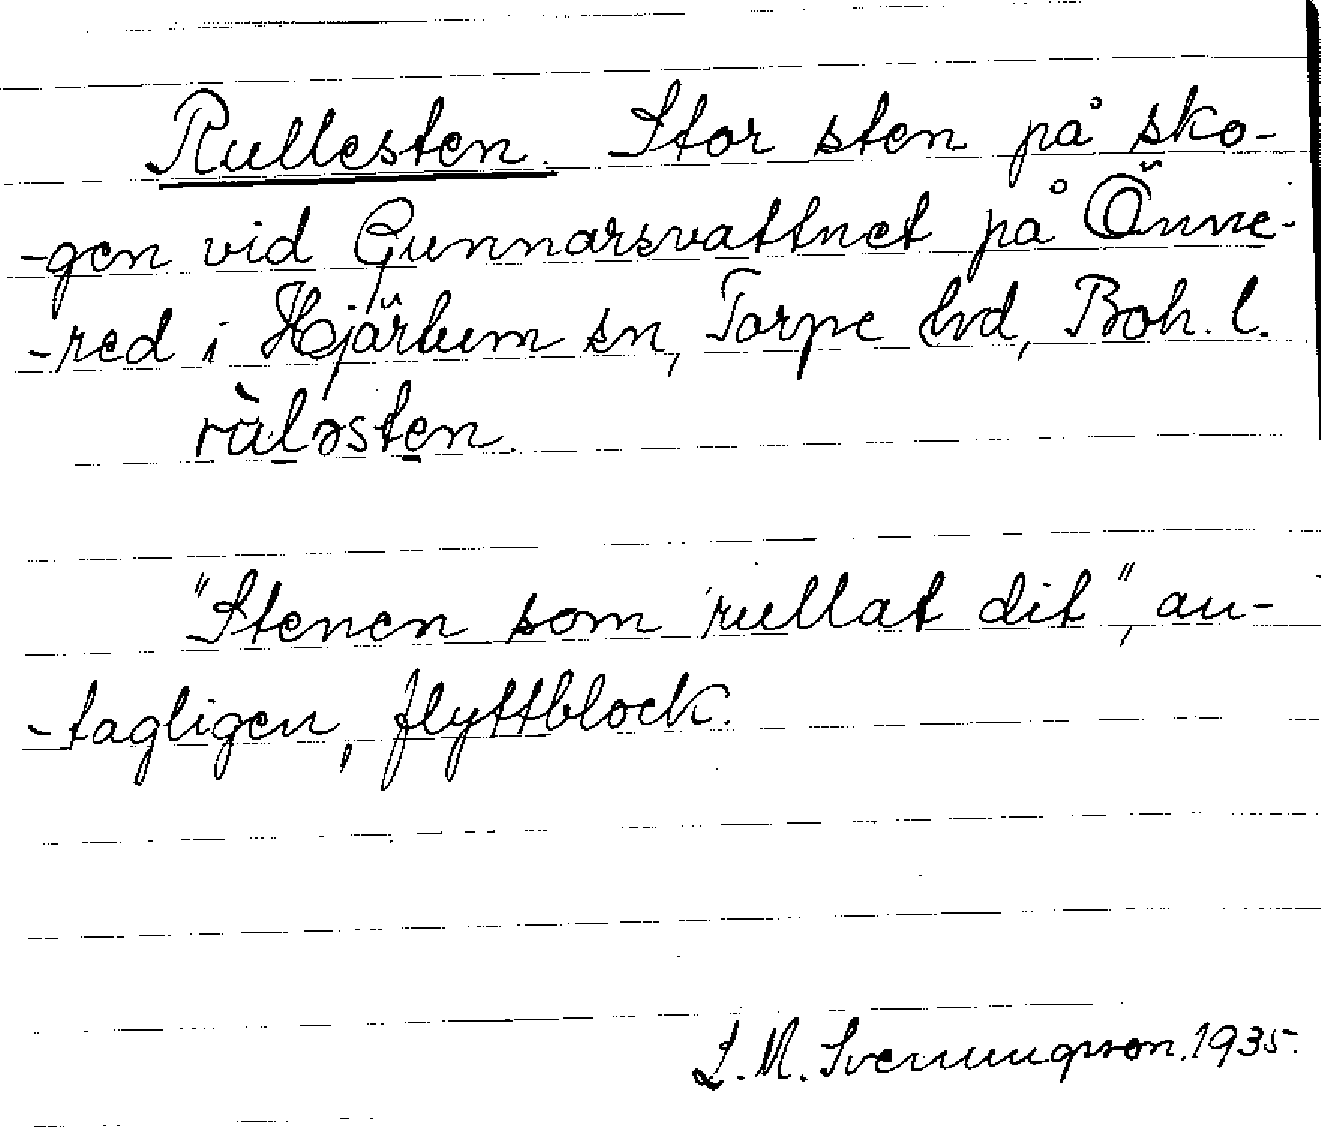 Rullesten. Stor sten på sko-
-gen vid Gunnarsvattnet på Önne-
-red i Hjärtum sn, Torpe hd, Boh. l.
ràləsten.
"Stenen som rullat dit", an-
-tagligen, flyttblock.
L. M. Svenungsson. 1935.